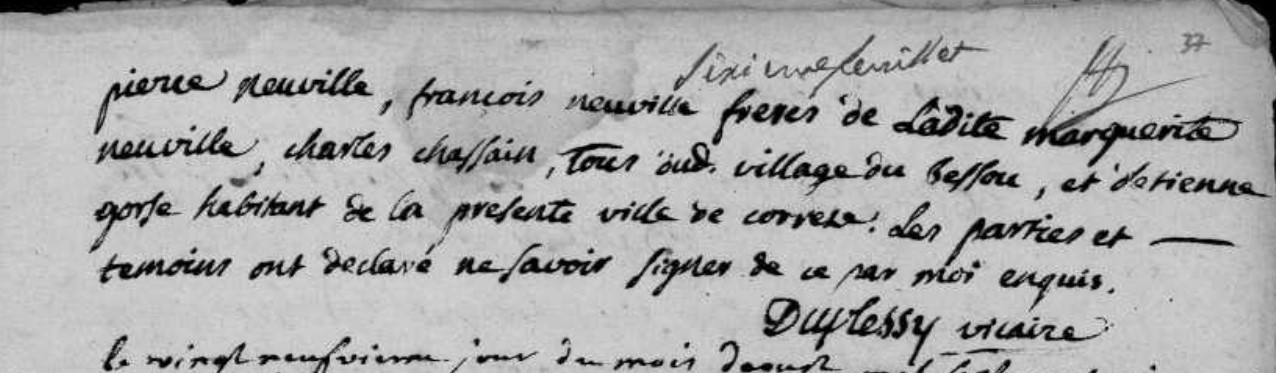 37
sixieme feuillet
pierre neuville, francois neuville freres de Ladite marguerite
neuville, charles chassain, tous dud. village du Bessou, et d'etienne
gorse habitant de la presente ville de correze. Les parties et
temoins ont declaré ne savoir signer de ce par moi enquis.
Duplessy vicaire
le vingt neufvieme jour du mois d'aoust